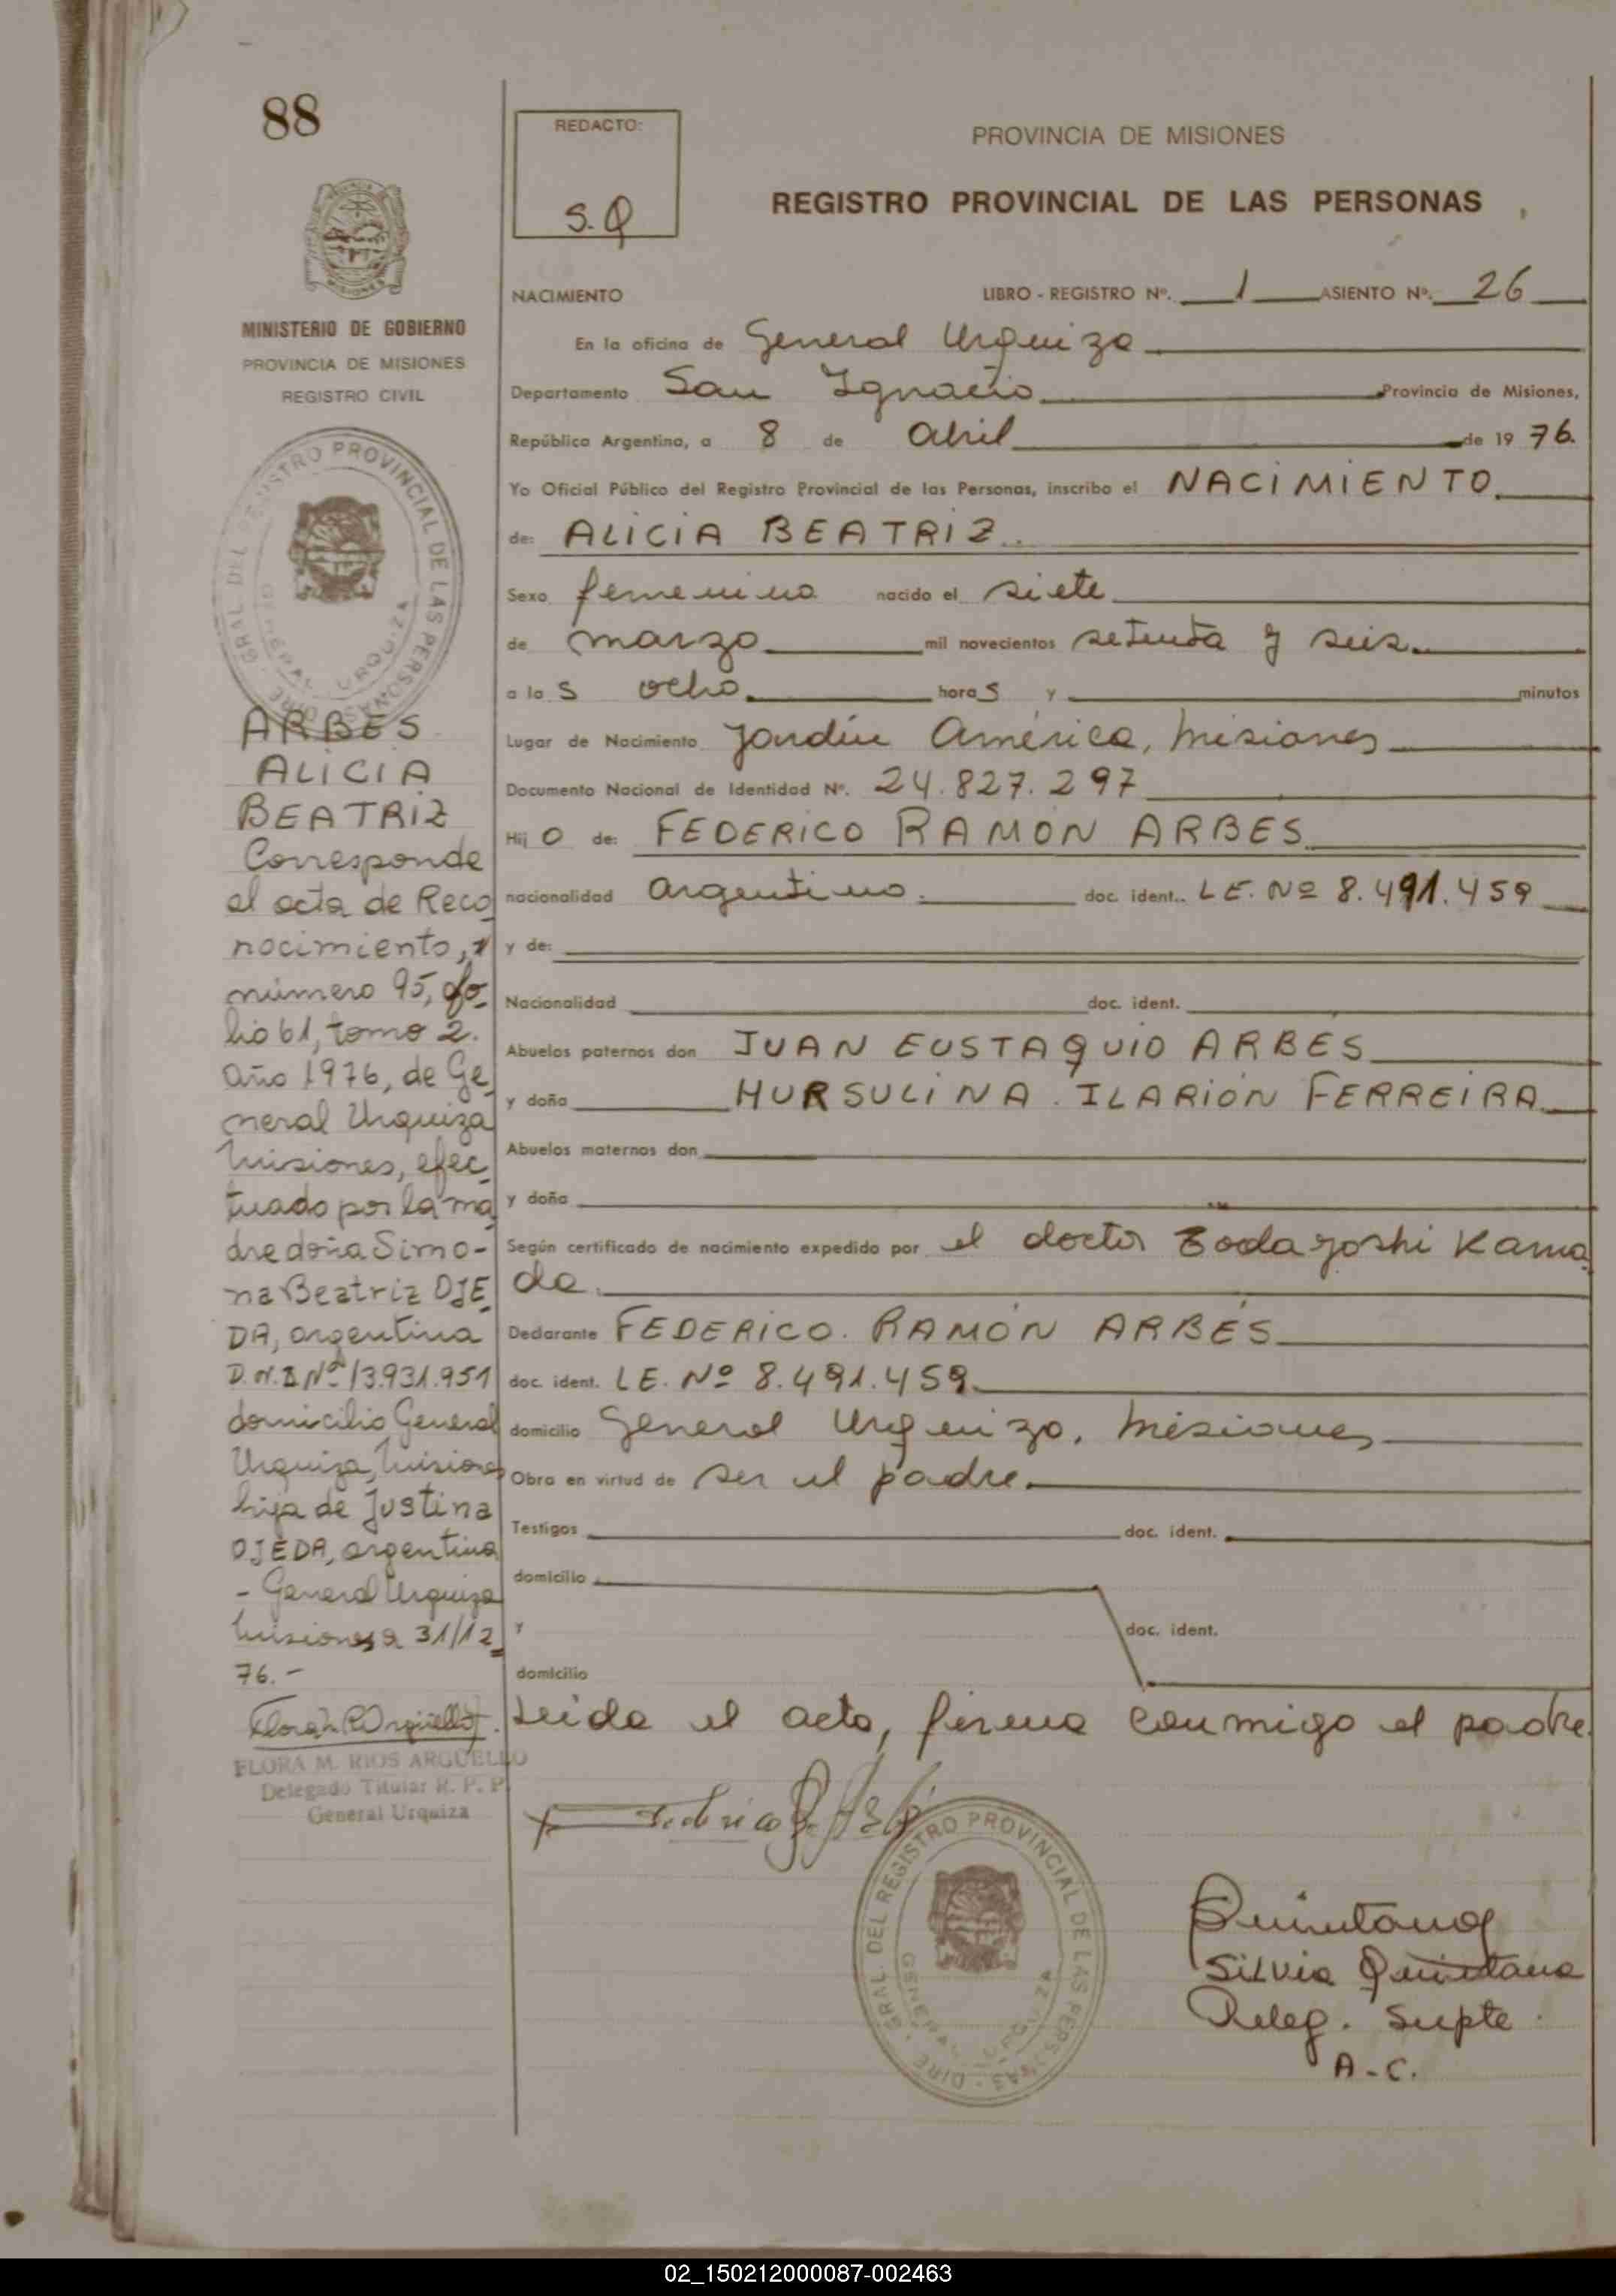 88
MINISTERIO DE GOBIERNO
PROVINCIA DE MISIONES
REGISTRO CIVIL
ARBES
ALICIA
BEATRIZ
Corresponde
al acta de Reco
nocimiento,
número 95, fo-
lio 61, tomo 2.
año 1976, de Ge
neral Urquiza
Misiones, efec
tuado por la ma
dre doña Simo-
na Beatriz OJE
DA, argentina
D.N.I Nº 13.931.951
domicilio General
Urquiza, Misiones
hija de Justina
OJEDA, argentina
- General Urquiza
Misiones a 31/12
76.-
FLORA M. RIOS ARGUELLO
Delegado Titular R. P. P
General Urquiza
REDACTO:
S.Q
PROVINCIA DE MISIONES
REGISTRO PROVINCIAL DE LAS PERSONAS
NACIMIENTO LIBRO - REGISTRO Nº. 1 ASIENTO Nº. 26
En la oficina de General Urquiza
Departamento San Ignacio Provincia de Misiones,
República Argentina, a 8 de Abril de 19 76.
Yo Oficial Público del Registro Provincial de las Personas, inscribo el NACIMIENTO
de: ALICIA BEATRIZ
Sexo femenino nacido el siete
de marzo mil novecientos setenta y seis
a las ocho horas y minutos
Lugar de Nacimiento Jardín América, Misiones
Documento Nacional de Identidad Nº. 24.827.297
Hijo de: FEDERICO RAMON ARBES
nacionalidad argentino doc. ident.. LE. Nº 8.491.459
y de:
Nacionalidad doc. ident.
Abuelos paternos don JUAN EUSTAQUIO ARBES
y doña HURSULINA ILARIÓN FERREIRA
Abuelos maternos don
y doña
Según certificado de nacimiento expedido por el doctor Sodayoshi Kama
da
Declarante FEDERICO RAMÓN ARBÉS
doc. ident. LE. Nº 8.491.459
domicilio General Urquiza, Misiones
Obra en virtud de ser el padre
Testigos doc. ident.
domicilio
y doc. ident.
domicilio
Leida el acta, firma conmigo el padre.
DIRE. GRAL. DEL REGISTRO PROVINCIAL DE LAS PERSONAS
GENERAL URQUIZA
Quintana
Silvia Quintana
Deleg. Supte
A-C.
02_150212000087-002463